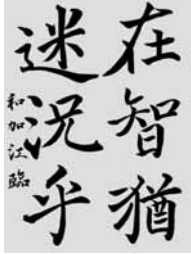 在智猶
迷況乎
和加江臨